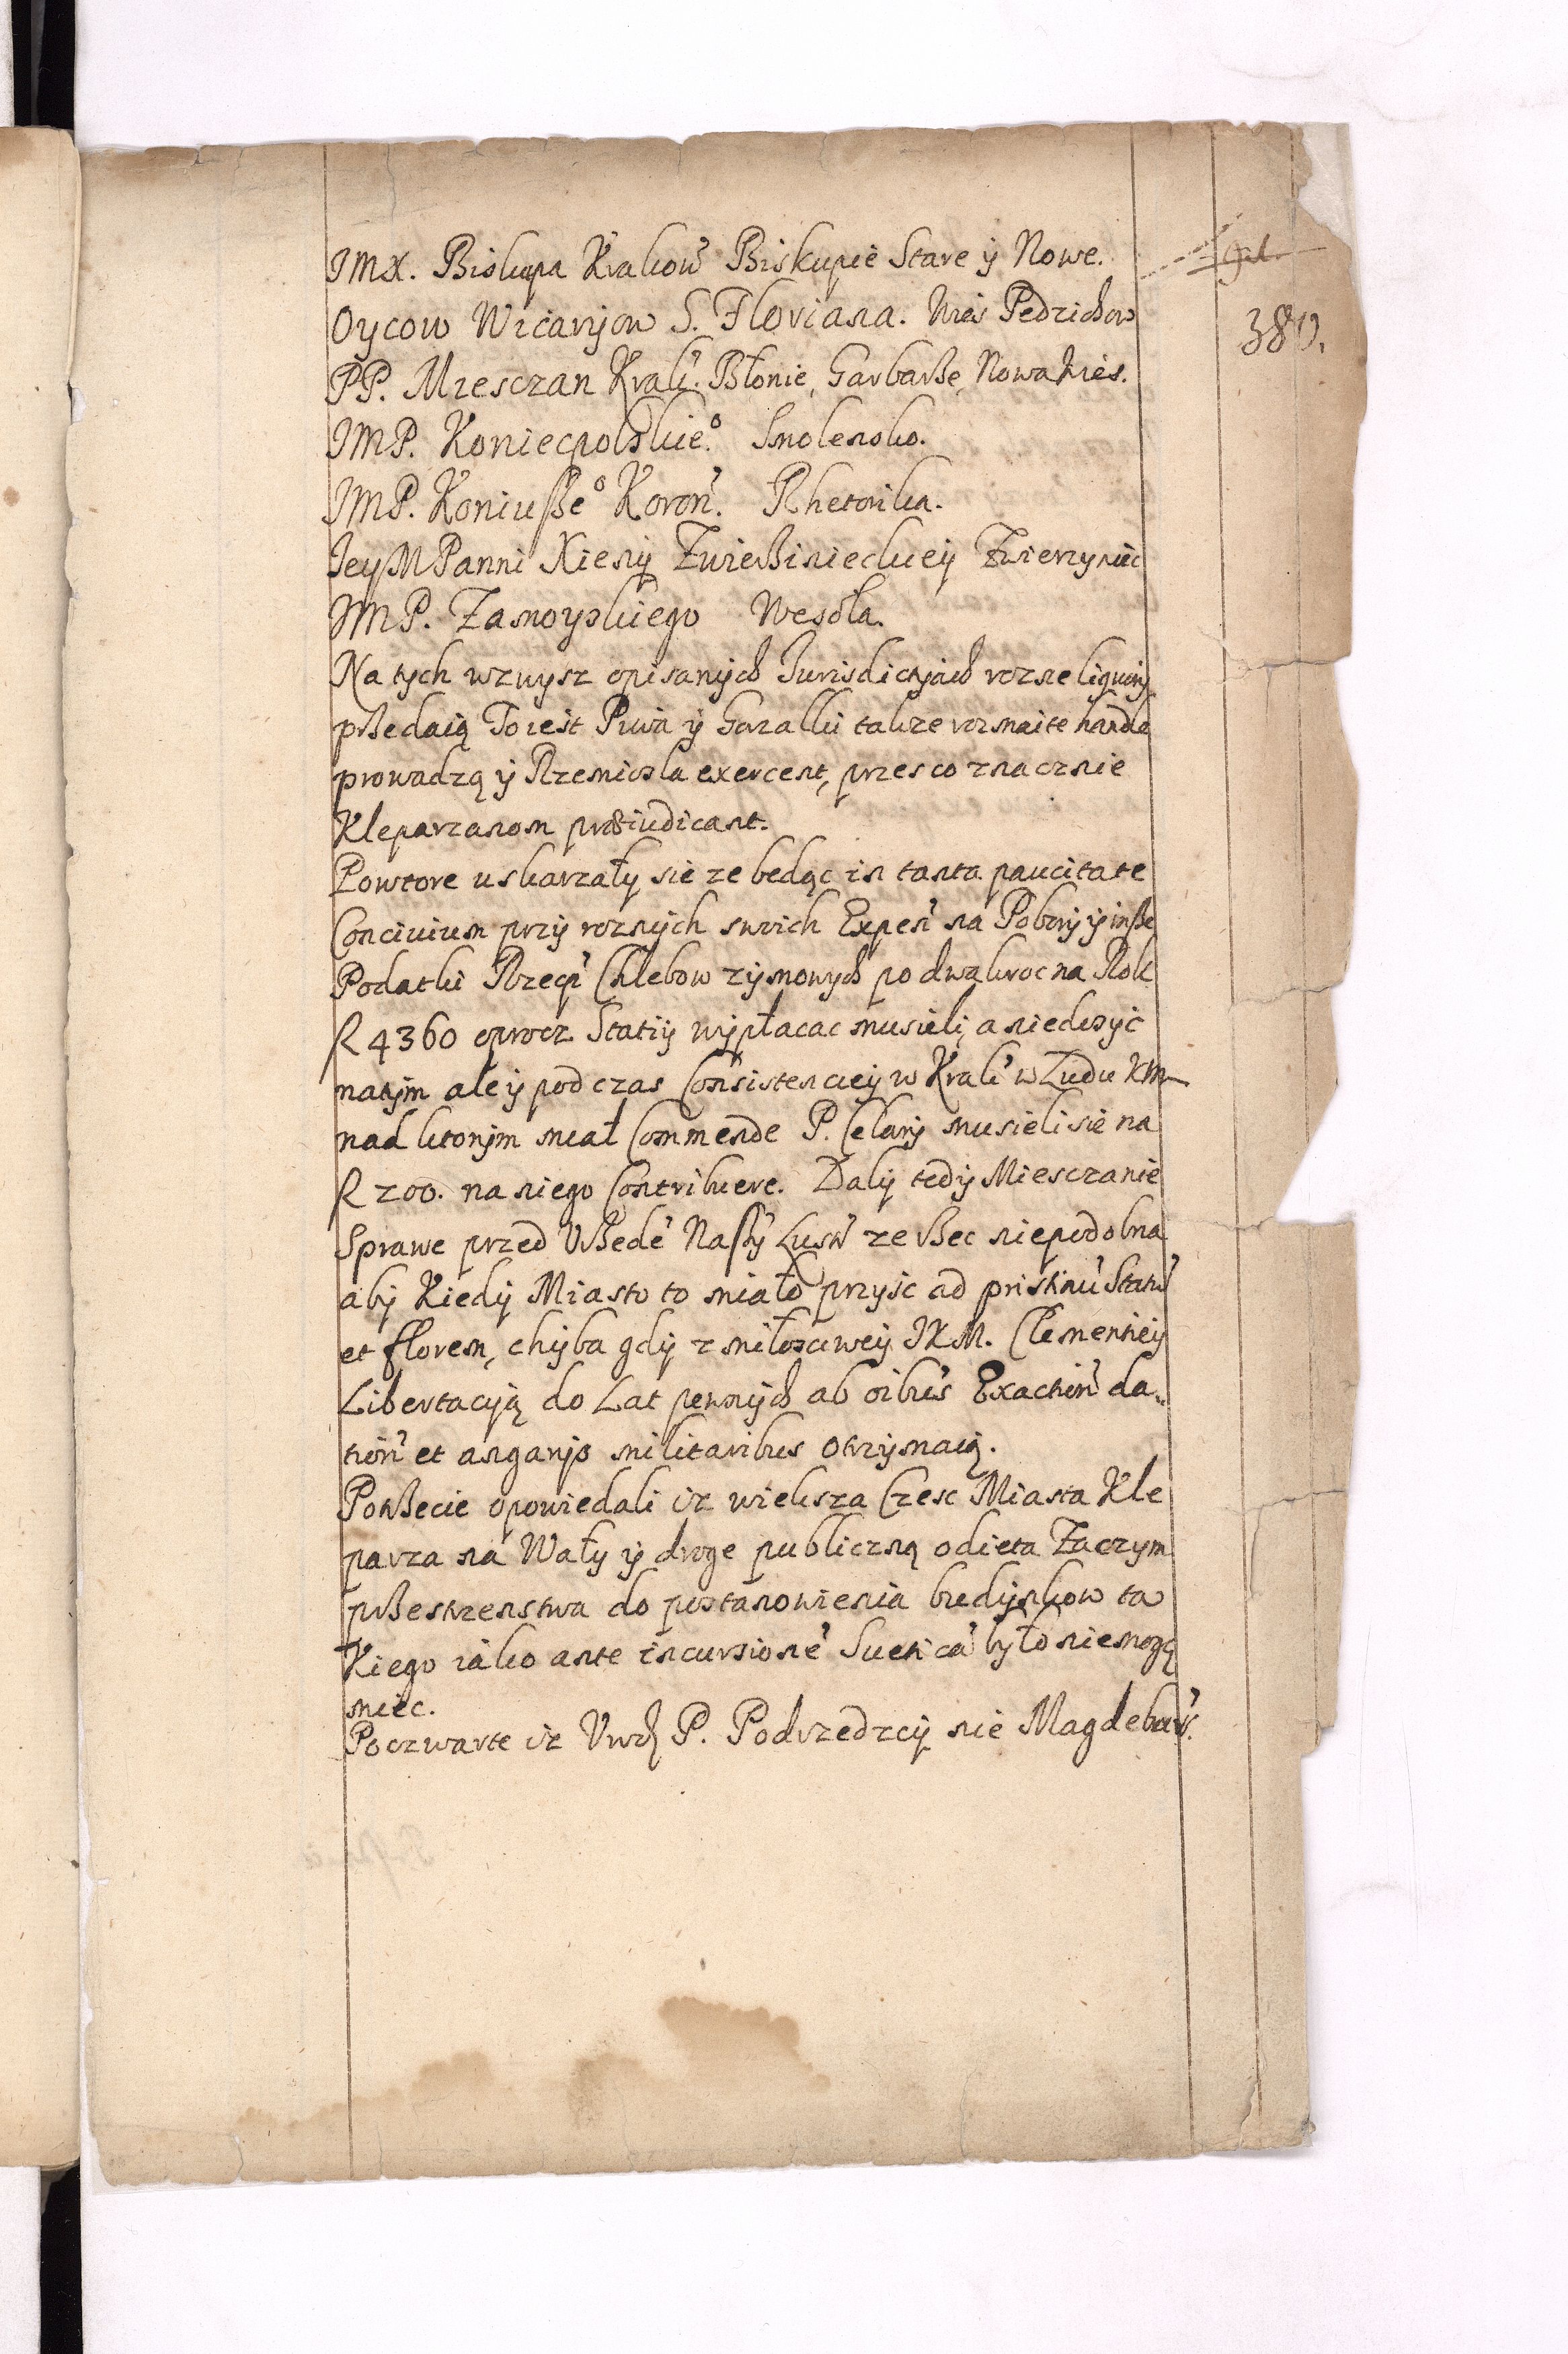 380.
JMX. Biskupa Krakow̃ Biskupie Stare ÿ Nowe.
Oycow Wicaryow S. Floriana. Wieś Pedzichow
PP. Miesczan Krak̃. Błonie, Garbarße, Nowa Wies.
JMP. Koniecpolskie⁰. Smolensko.
JMP. Koniußė⁰ Koroñ. Rhetorika.
Jey M Panni Xieny Zwießinieckiey Zwierzyniec
JMP. Zamoyskiego Wesoła.
Na tych wzwysz opisanych Jurisdictyach rozne liquory
przedaią To iest Piwa ÿ Gorzałki takze rozmaite handle
prowadzą ÿ Rzemiosla exercent, przes co znacznie
Kleparzanom præiudicant.
Powtore uskarzały sie ze będąc in tanta paucitate
Conciuium przy roznych swoich Expeñ na Pobory ÿ inße
Podatki Rzecp̃ Chlebow zymowych po dwakroc na Rok
R 4360 oprocz Statiÿ wypłacac musieli, a niedosyć
natym ale ÿ podczas Consistencieÿ w Krak̃ w Ludu KM
nad ktorym miał Commende P. Celary musieli sie na
R 200. na niego Contribuere. Daly tedy Miesczanie
Sprawe przed Vrzedẽ Naßỹ Lusñ ze rzec niepodobna
aby Kiedy Miasto to miało przyśc ad pristinũ Statũ
et florem, chyba gdy z miłosciwey JKM. Clementiey
Libertacyą do Lat pewnych ab oibũs Exactioñ da„
tioñ et angarÿs militaribus otrzymaią.
Potrzecie opowiedali iz wieksza Czesc Miasta Kle
parza na Wały ÿ droge publiczną odieta Zaczym
przestrzenstwa do postanowienia budynkow ta
Kiego iako ante incursionẽ Sueticã było niemogą
miec.
Poczwarte iz Vrodz P. Podrzedzcy nie Magdebur̃.